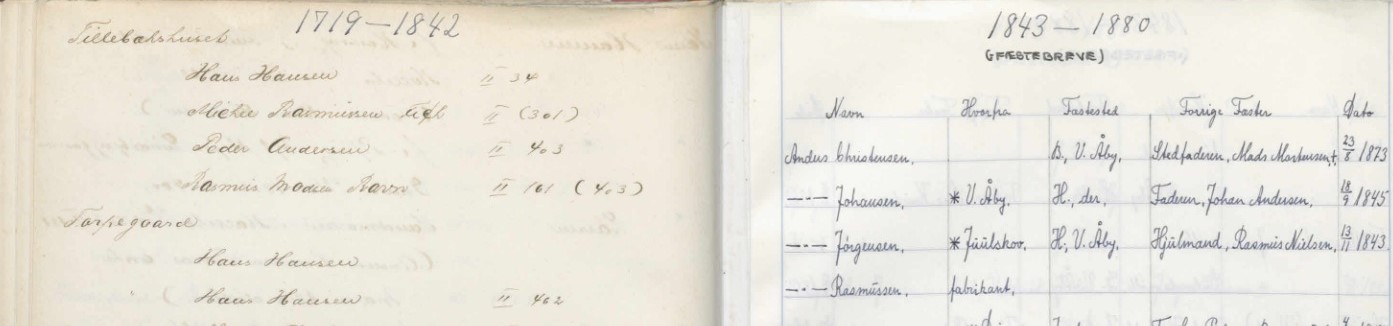 1719-1842
Tillebakshuset
Hans Hansen II 34
Michel Rasmussen II (301)
Peder Andersen II 403
Rasmus Madsen Ravn II 161 (403)
Torpegaard
Hans Hansen
Hans Hansen II 402
1843-1880
(FÆSTEBREVE)
Navn Hvorfra Fæstested Forrige Fæster Dato
Anders Christensen, B., V. Åby, Stedfaderen, Mads Mortensen, †, 23/8 1873
—"— Johansen, * V. Åby, H., der, Faderen, Johan Andersen, 18/9 1845
—"— Jörgensen, * Juulskov, H., V. Åby, Hjulmand, Rasmus Nielsen, 13/11 1843
—"— Rasmussen, fabrikant,